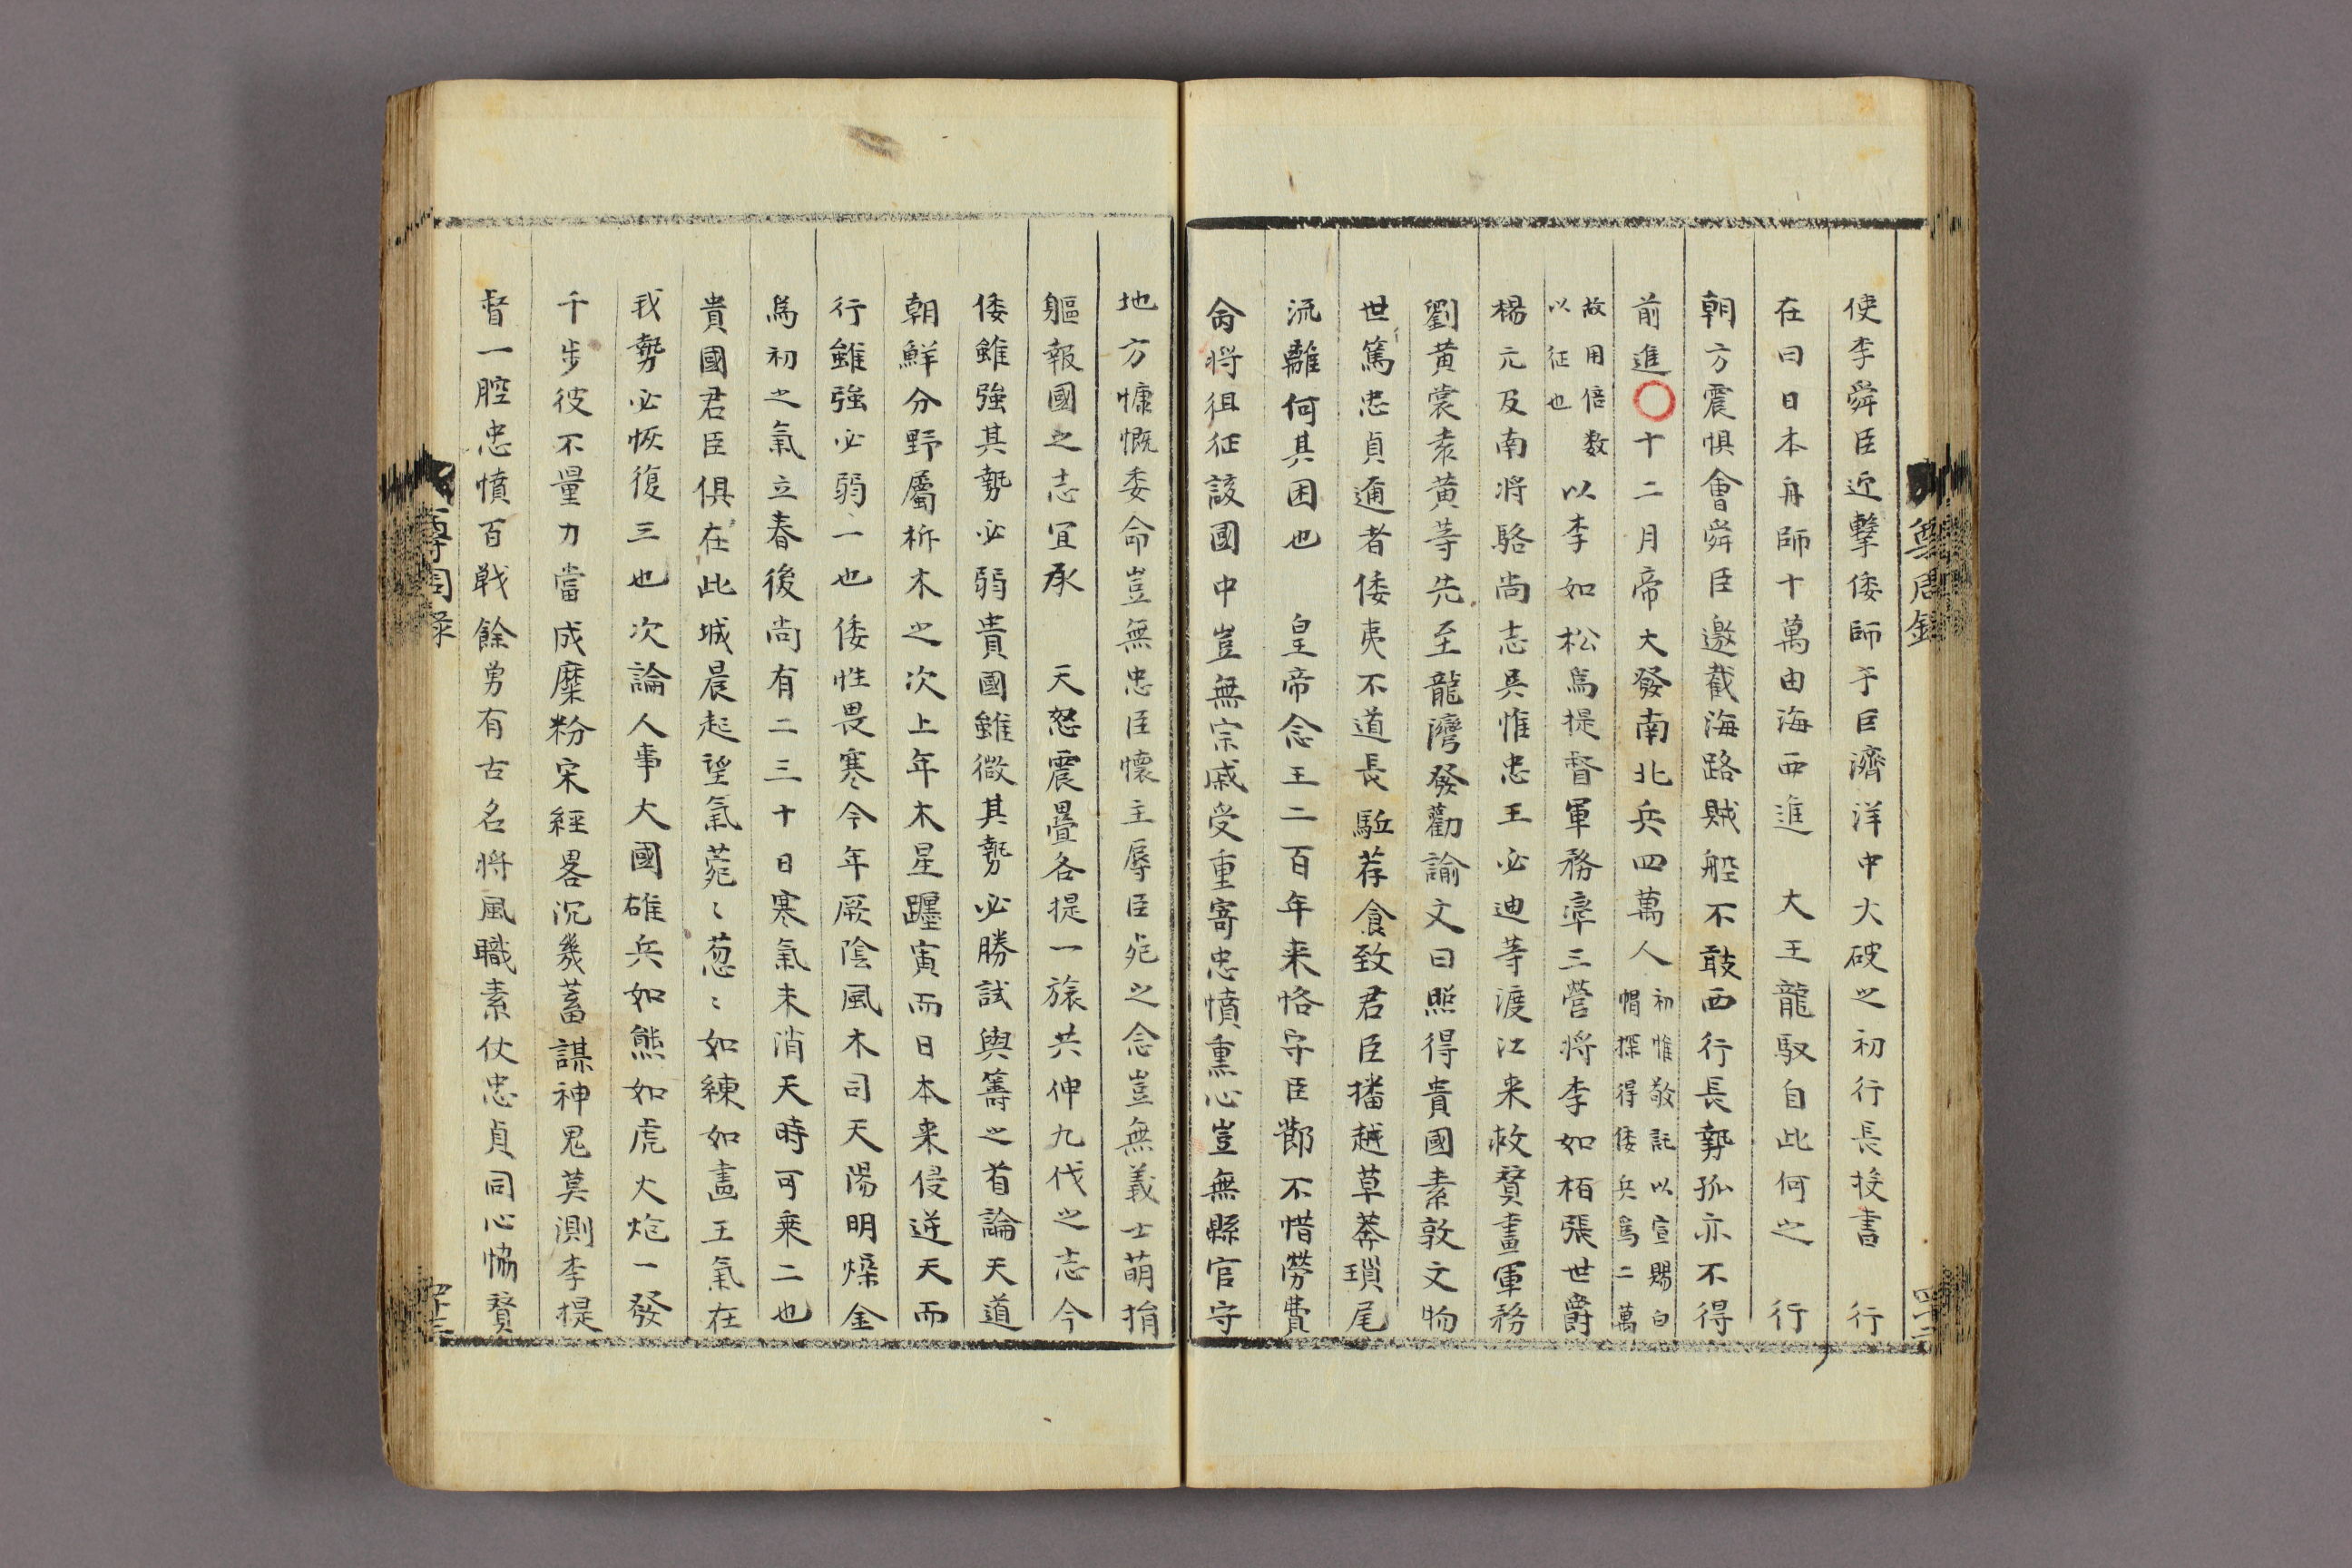 使李舜臣迎擊倭師于巨濟洋中大破之初行長投書 行
在曰日本舟師十萬由海西進 大王龍馭自此何之 行
朝方震惧會舜臣邀截海路賊船不敢西行長勢孤亦不得
前進○十二月帝大發南北兵四萬人初惟敬託以宣賜白
帽探得倭兵爲二萬
故用倍数
以征也
以李如松爲提督軍務率三營將李如栢張世爵
楊元及南將駱尚志吳惟忠王必迪等渡江来救贊畫軍務
劉黄裳袁黄等先至龍灣發勸諭文曰照得貴國素敦文物
世篤忠貞邇者倭夷不道長駈荐食致君臣播越草莽瑣尾
流離何其困也 皇帝念王二百年来恪守臣節不惜勞費
命將徂征該國中豈無宗戚受重寄忠憤熏心豈無縣官守
地方慷慨委命豈無忠臣懷主辱臣死之念豈無義士萌捐
軀報國之志宜承 天怒震疊各提一旅共伸九伐之志今
倭雖強其勢必弱貴國雖微其勢必勝試與籌之首論天道
朝鮮分野屬析木之次上年木星躔寅而日本来侵逆天而
行雖強必弱一也倭性畏寒今年厥陰風木司天陽明燥金
爲初之氣立春後尚有二三十日寒氣未消天時可乘二也
貴國君臣俱在此城晨起望氣菀〻葱〻如練如畫王氣在
我勢必恢復三也次論人事大國雄兵如熊如虎大炮一發
千步彼不量力當成糜粉宋經畧沉幾蓄謀神鬼莫測李提
督一腔忠憤百戰餘勇有古名將風職素仗忠貞同心恊贊
尊周錄
四十三